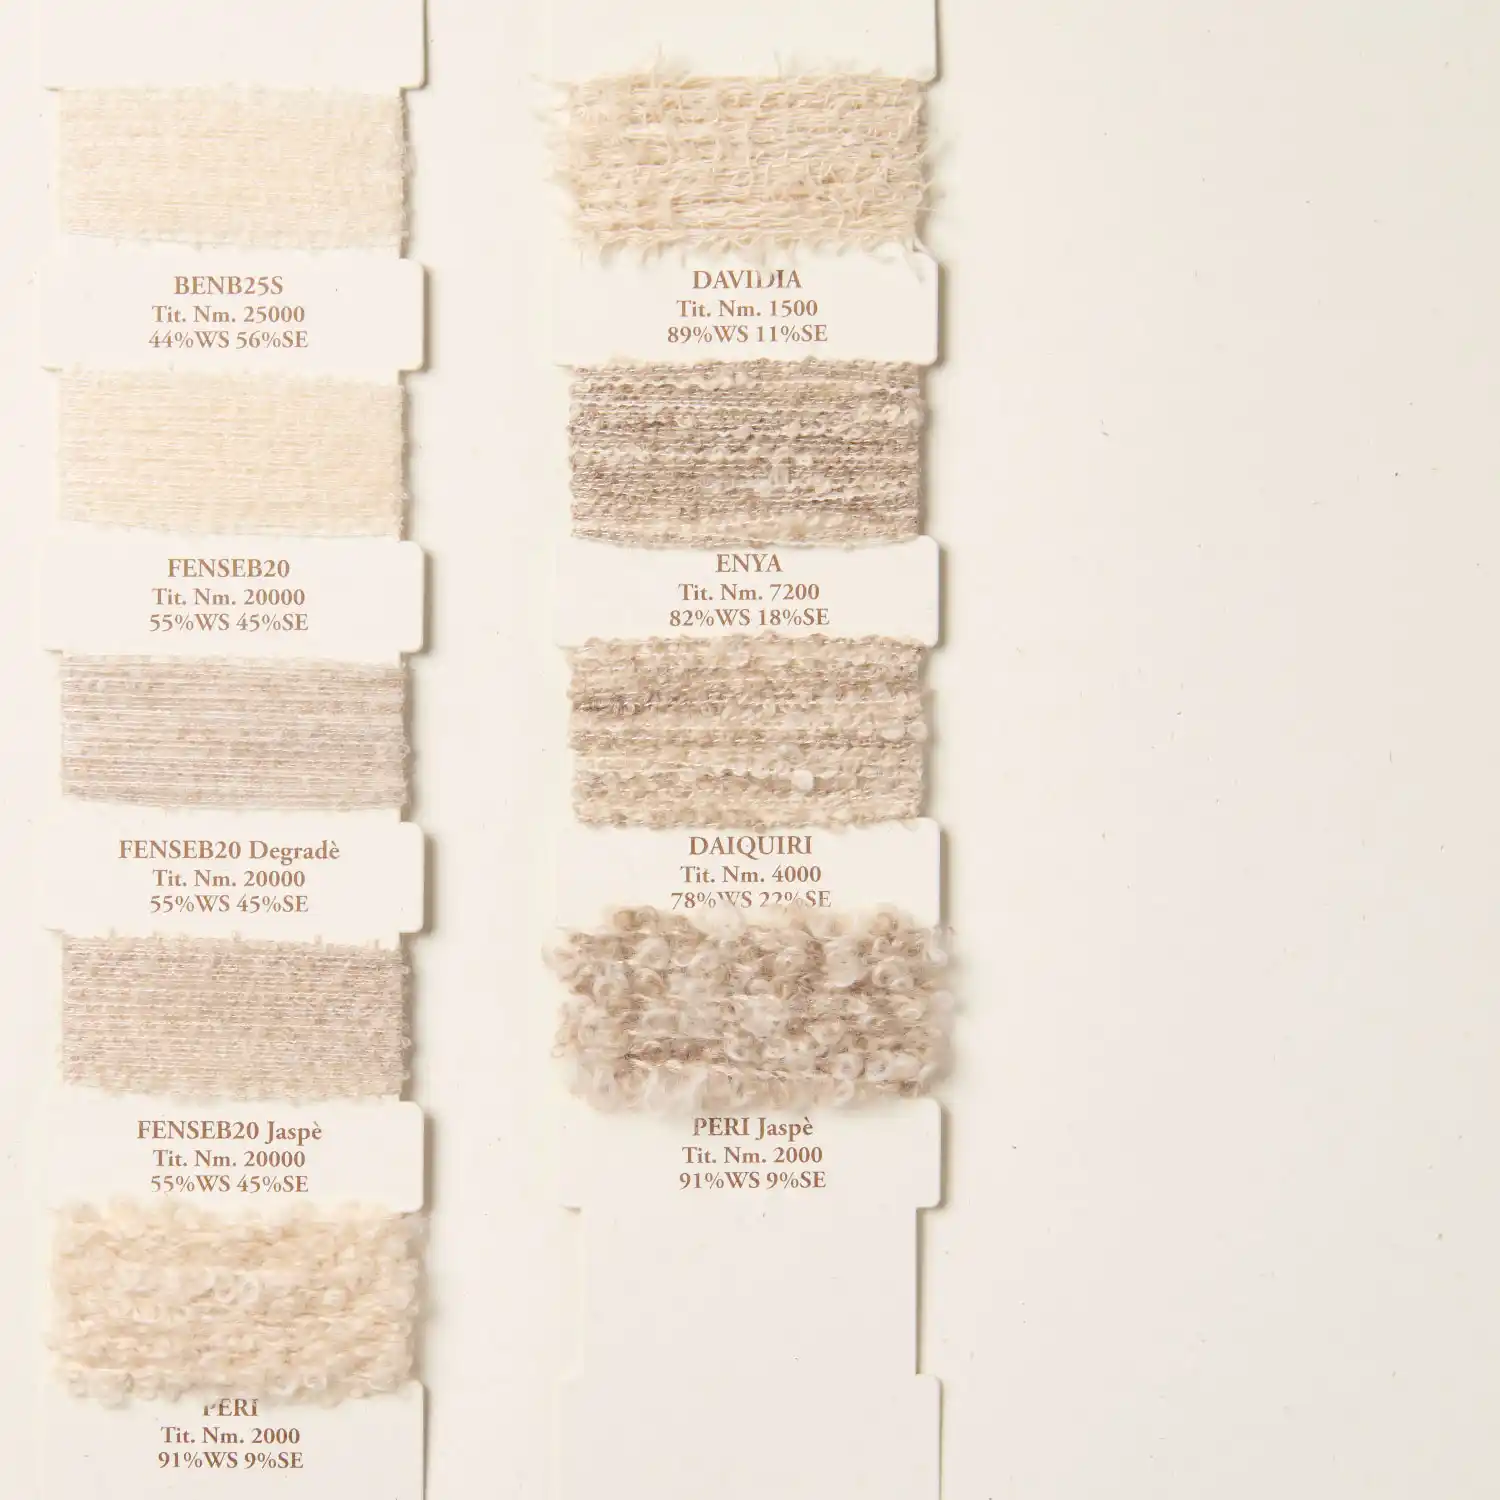 BENB25S
Tit. Nm. 25000
44%WS 56%SE
FENSEB20
Tit. Nm. 20000
55%WS 45%SE
FENSEB20 Degradè
Tit. Nm. 20000
55%WS 45%SE
FENSEB20 Jaspè
Tit. Nm. 20000
55%WS 45%SE
PERI
Tit. Nm. 2000
91%WS 9%SE
DAVIDIA
Tit. Nm. 1500
89%WS 11%SE
ENYA
Tit. Nm. 7200
82%WS 18%SE
DAIQUIRI
Tit. Nm. 4000
78%WS 22%SE
PERI Jaspè
Tit. Nm. 2000
91%WS 9%SE